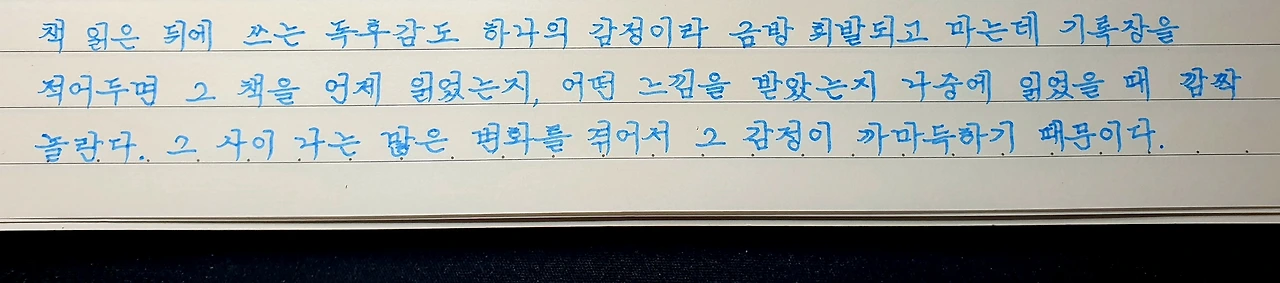 책 읽은 뒤에 쓰는 독후감도 하나의 감정이라 금방 휘발되고 마는데 기록장을
적어두면 그 책을 언제 읽었는지, 어떤 느낌을 받았는지 나중에 읽었을 때 깜짝
놀란다. 그 사이 나는 많은 변화를 겪어서 그 감정이 까마득하기 때문이다.